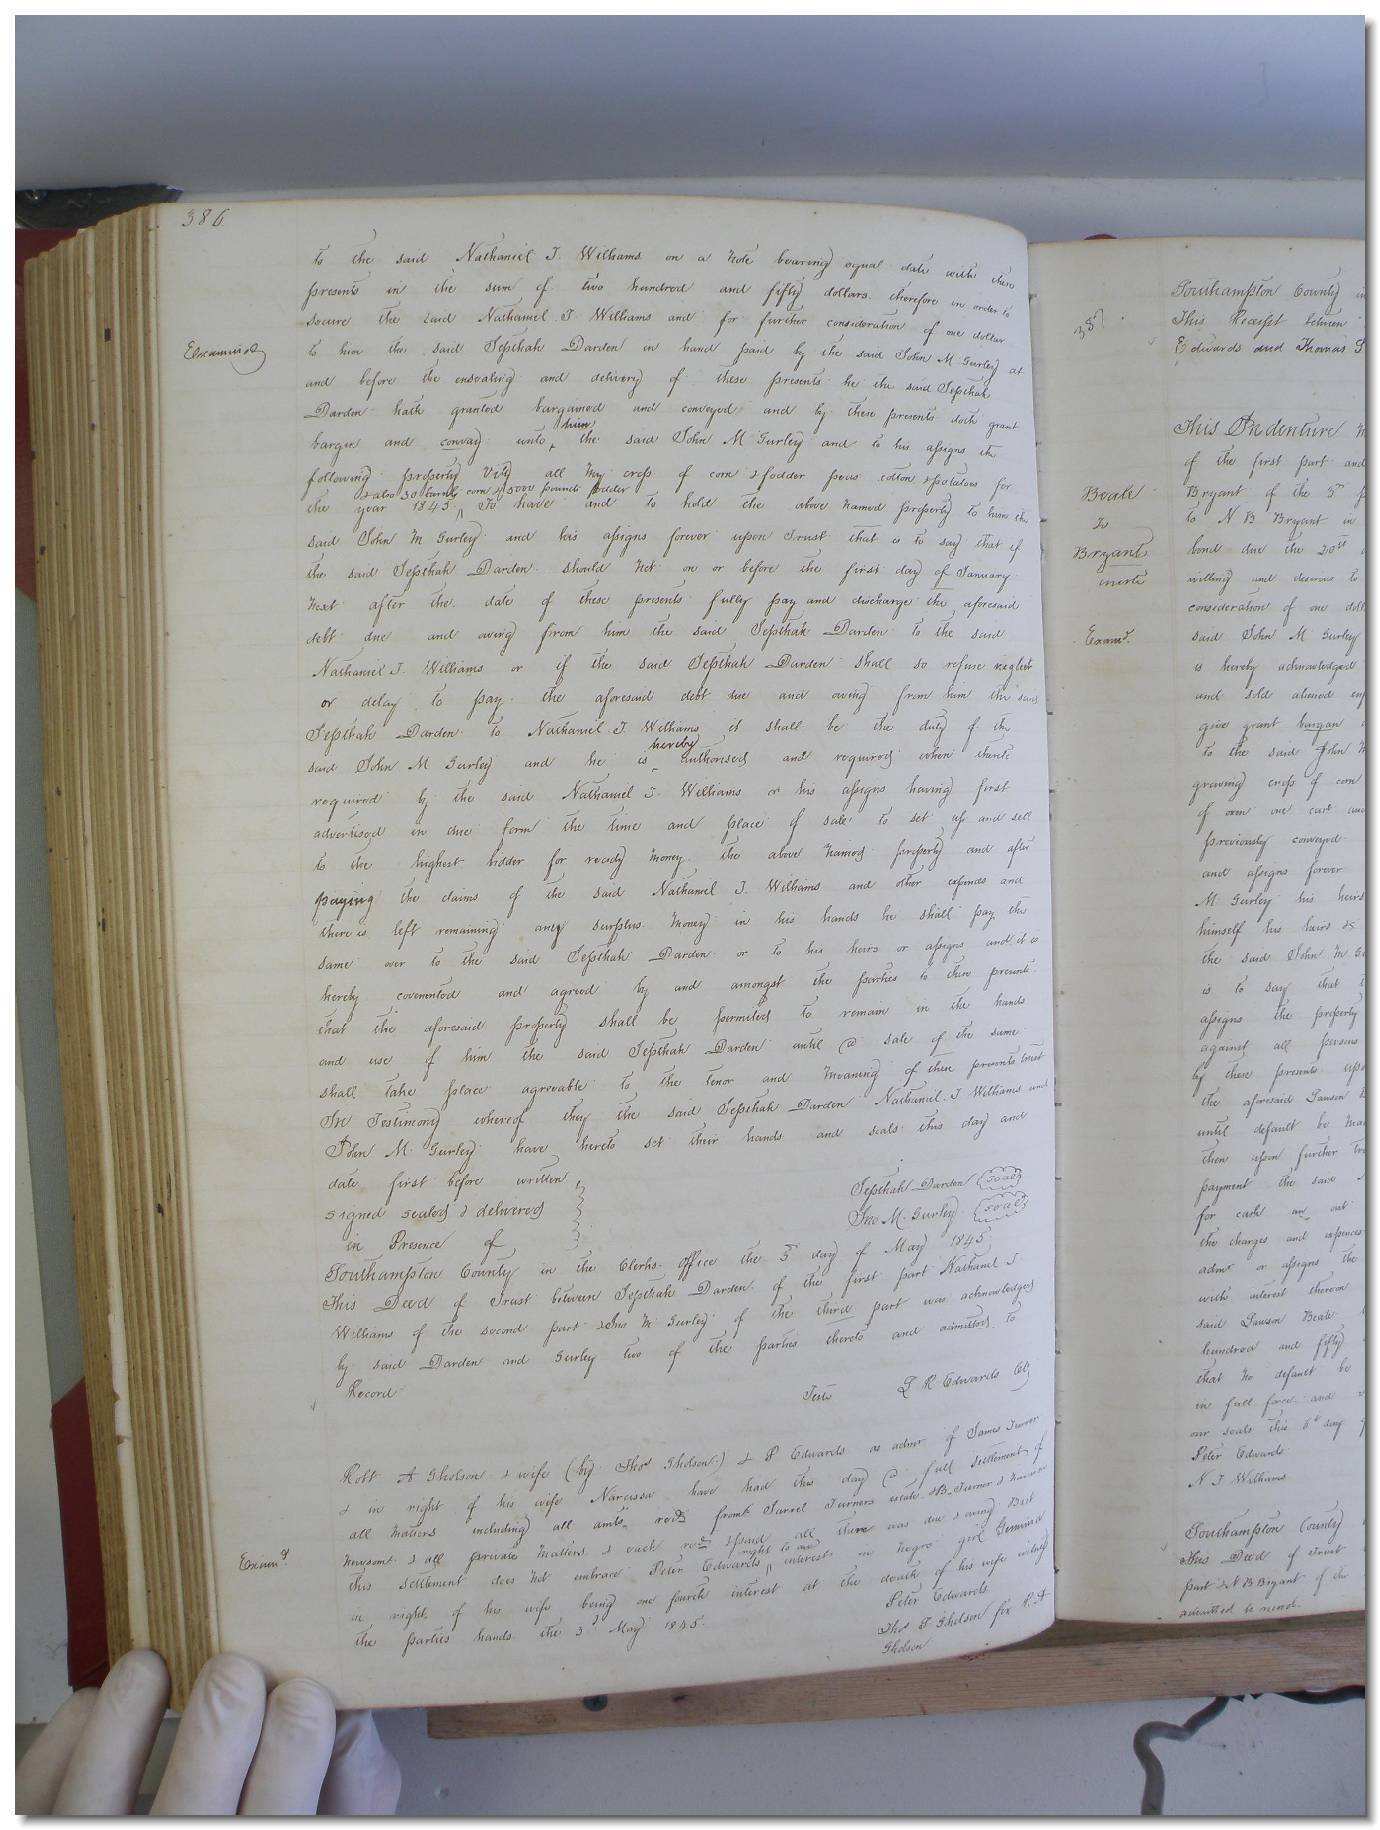 386
to the said Nathaniel J. Williams on a Note bearing equal date with these
presents in the sum of two hundred and fifty dollars. therefore in order to
secure the said Nathaniel J Williams and for further consideration of one dollar
Examined
to him the said Jepthah Darden in hand paid by the said John M Gurley at
and before the ensealing and delivery of these presents he the said Jepthah
Darden hath granted bargained and conveyed and by these presents doth grant
bargin and convay unto him the said John M Gurley and to his assigns the
following property Viz all my crop of corn & fodder peas cotton & potatoes for
& also 30 barrels corn & 5000 pounds fodder
the year 1845. To have and to hold the above named property to him the
said John M Gurley and his assigns forever upon Trust that is to say that if
the said Jepthah Darden should not on or before the first day of January
next after the date of these presents fully pay and discharge the aforesaid
debt due and owing from him the said Jepthah Darden to the said
Nathaniel J. Williams or if the said Jepthah Darden shall so refuse neglect
or delay to pay the aforesaid debt due and owing from him the said
Jepthah Darden to Nathaniel J. Williams it shall be the duty of the
said John M Gurley and he is hereby authorised and required when thereto
required by the said Nathaniel J. Williams or his assigns having first
advertised in due form the time and place of sale to set up and sell
to the highest bidder for ready money the above named property and after
paying the claims of the said Nathaniel J. Williams and other expences and
there is left remaining any surplus money in his hands he shall pay the
same over to the said Jepthah Darden or to his heirs or assigns and it is
hereby covenented and agreed by and amongst the parties to these presents
that the aforesaid property shall be permited to remain in the hands
and use of him the said Jepthah Darden until a sale of the same
shall take place agreeable to the tenor and meaning of these presents trust
In Testimony whereof they the said Jepthah Darden Nathaniel J Williams and
John M. Gurley have hereto set their hands and seals this day and
date first before written
signed sealed & delivered
in Presence of
Jepthah Darden (seal)
Jno M. Gurley (seal)
Southampton County in the Clerks office the 5th day of May 1845
This Deed of Trust between Jepthah Darden of the first part Nathaniel J
Williams of the second part & Jno M Gurley of the third part was acknowledged
by said Darden and Gurley two of the parties thereto and admitted to
Record
Teste L R Edwards Clk
Robt A Gholson & wife (by Thos Gholson) & P Edwards as admr of James Turner
& in right of his wife Narcissa have had this day a full settlement of
all matters including all amts recd from Turners estate & B. Turner &
Newsom & all private matters & each recd & paid all there was due & owing But
Examd
this settlement does not embrace Peter Edwards right to an interest in Negro girl Jemima
in right of his wife being one fourth interest at the death of his wife witness
the parties hands the 3d May 1845.
Peter Edwards
Thos J Gholson for R. A
Gholson
387
Southampton County in
This Receipt between
Edwards and Thomas
Beale
To
Bryant
Examd.
This Indenture
of the first part and
Bryant of the 3rd
to N B Bryant in
bond due the 20th
willing and desirous to
consideration of one doll
said John M Gurley
is hereby acknowledged
and sold aliened
give grant bargan
to the said John M
growing crop of corn
of oxen one cart and
previously conveyed
and assigns forever
M Gurley his heirs
himself his heirs &c
the said John M
is to say that
assigns the property
against all persons
by these presents
the aforesaid Lawson
until default be
then upon further
payment the said
for cash
the charges and expences
admr or assigns the
with interest thereon
said Lawson Beale
hundred and fifty
that no default be
in full force and
our seals this 6th day
Peter Edwards
N J Williams
Southampton County
This Deed of Trust
part & N B Bryant of the
admitted to record